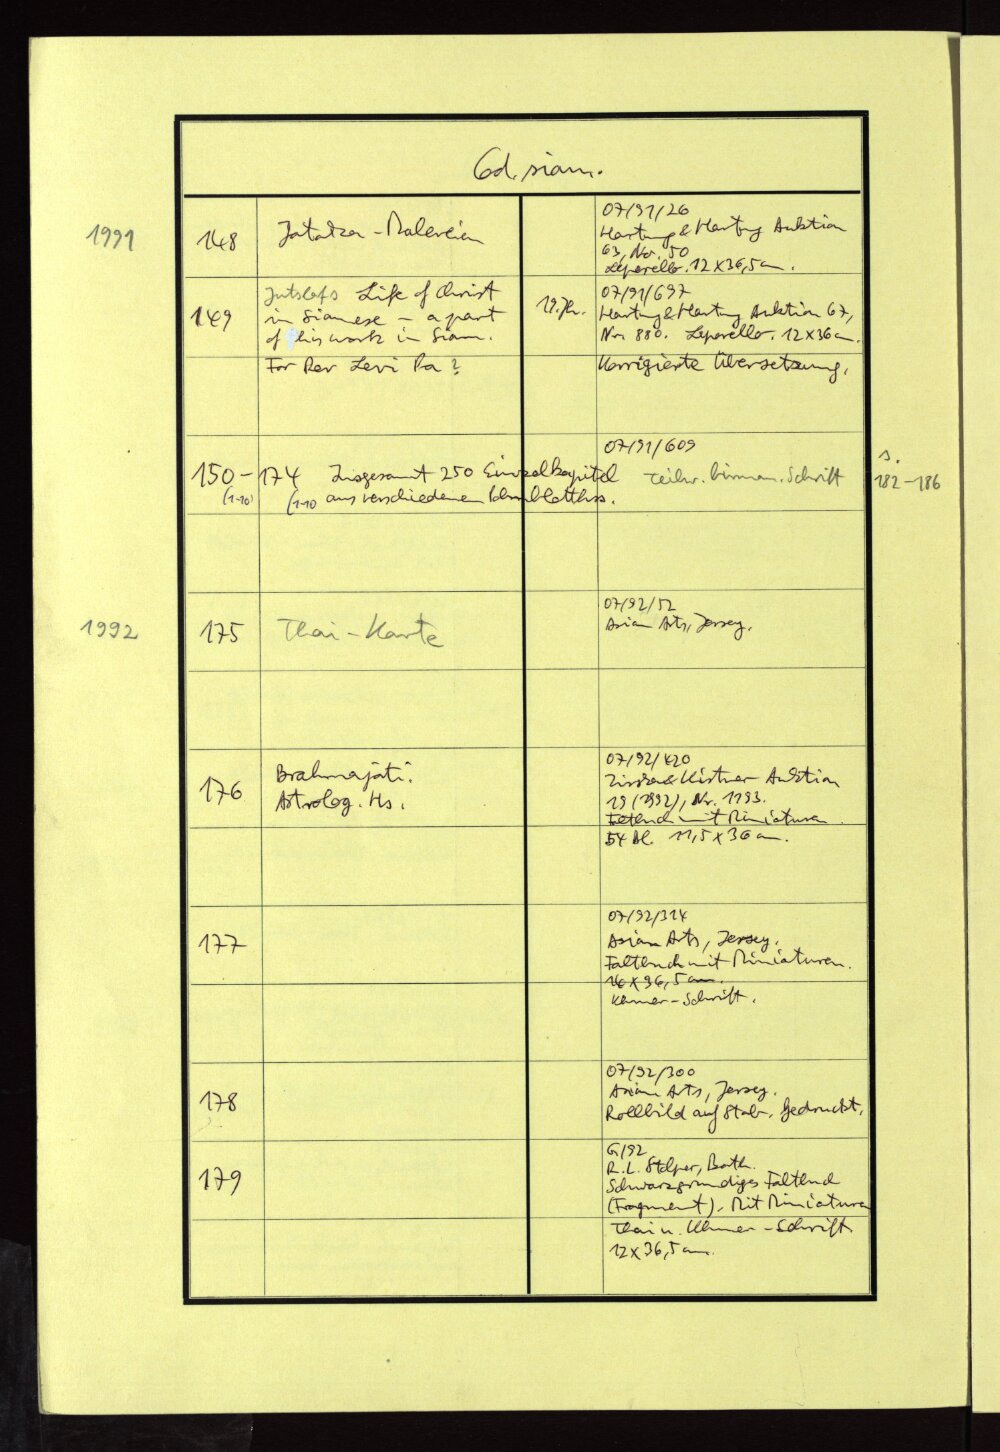 Cod. siam.
1991
148
Jataka-Malereien
07/91/26
Hartung & Hartung Auktion
63, Nr. 50
Leporello. 12 x 36,5 cm.
149
Gutslafs Life of Christ
in Siamese – a part
of his work in Siam.
For Rev Levi Pa?
19. Jh.
07/91/697
Hartung & Hartung Auktion 67,
Nr. 880. Leporello. 12 x 36 cm.
Korrigierte Übersetzung.
150-174 Insgesamt 250 Einzelkapitel
(1-10) (1-10 aus verschiedenen Palmblatthss.
07/91/609
teilw. birman. Schrift
s.
182-186
1992
175
Thai-Karte
07/92/52
Asian Arts, Jersey.
176
Brahmajati.
Astrolog. Hs.
07/92/420
Zisska & Kistner Auktion
19 (1992), Nr. 1193.
Faltbuch mit Miniaturen.
54 Bl. 11,5 x 36 cm.
177
07/92/314
Asian Arts, Jersey.
Faltbuch mit Miniaturen.
14 x 36,5 cm.
Khmer-Schrift.
178
07/92/300
Asian Arts, Jersey.
Rollbild auf Stab. Gedruckt.
179
G/92
R.L. Bath.
Schwarzgrundiges Faltbuch
(Fragment). Mit Miniaturen
Thai u. Khmer-Schrift
12 x 36,5 cm.